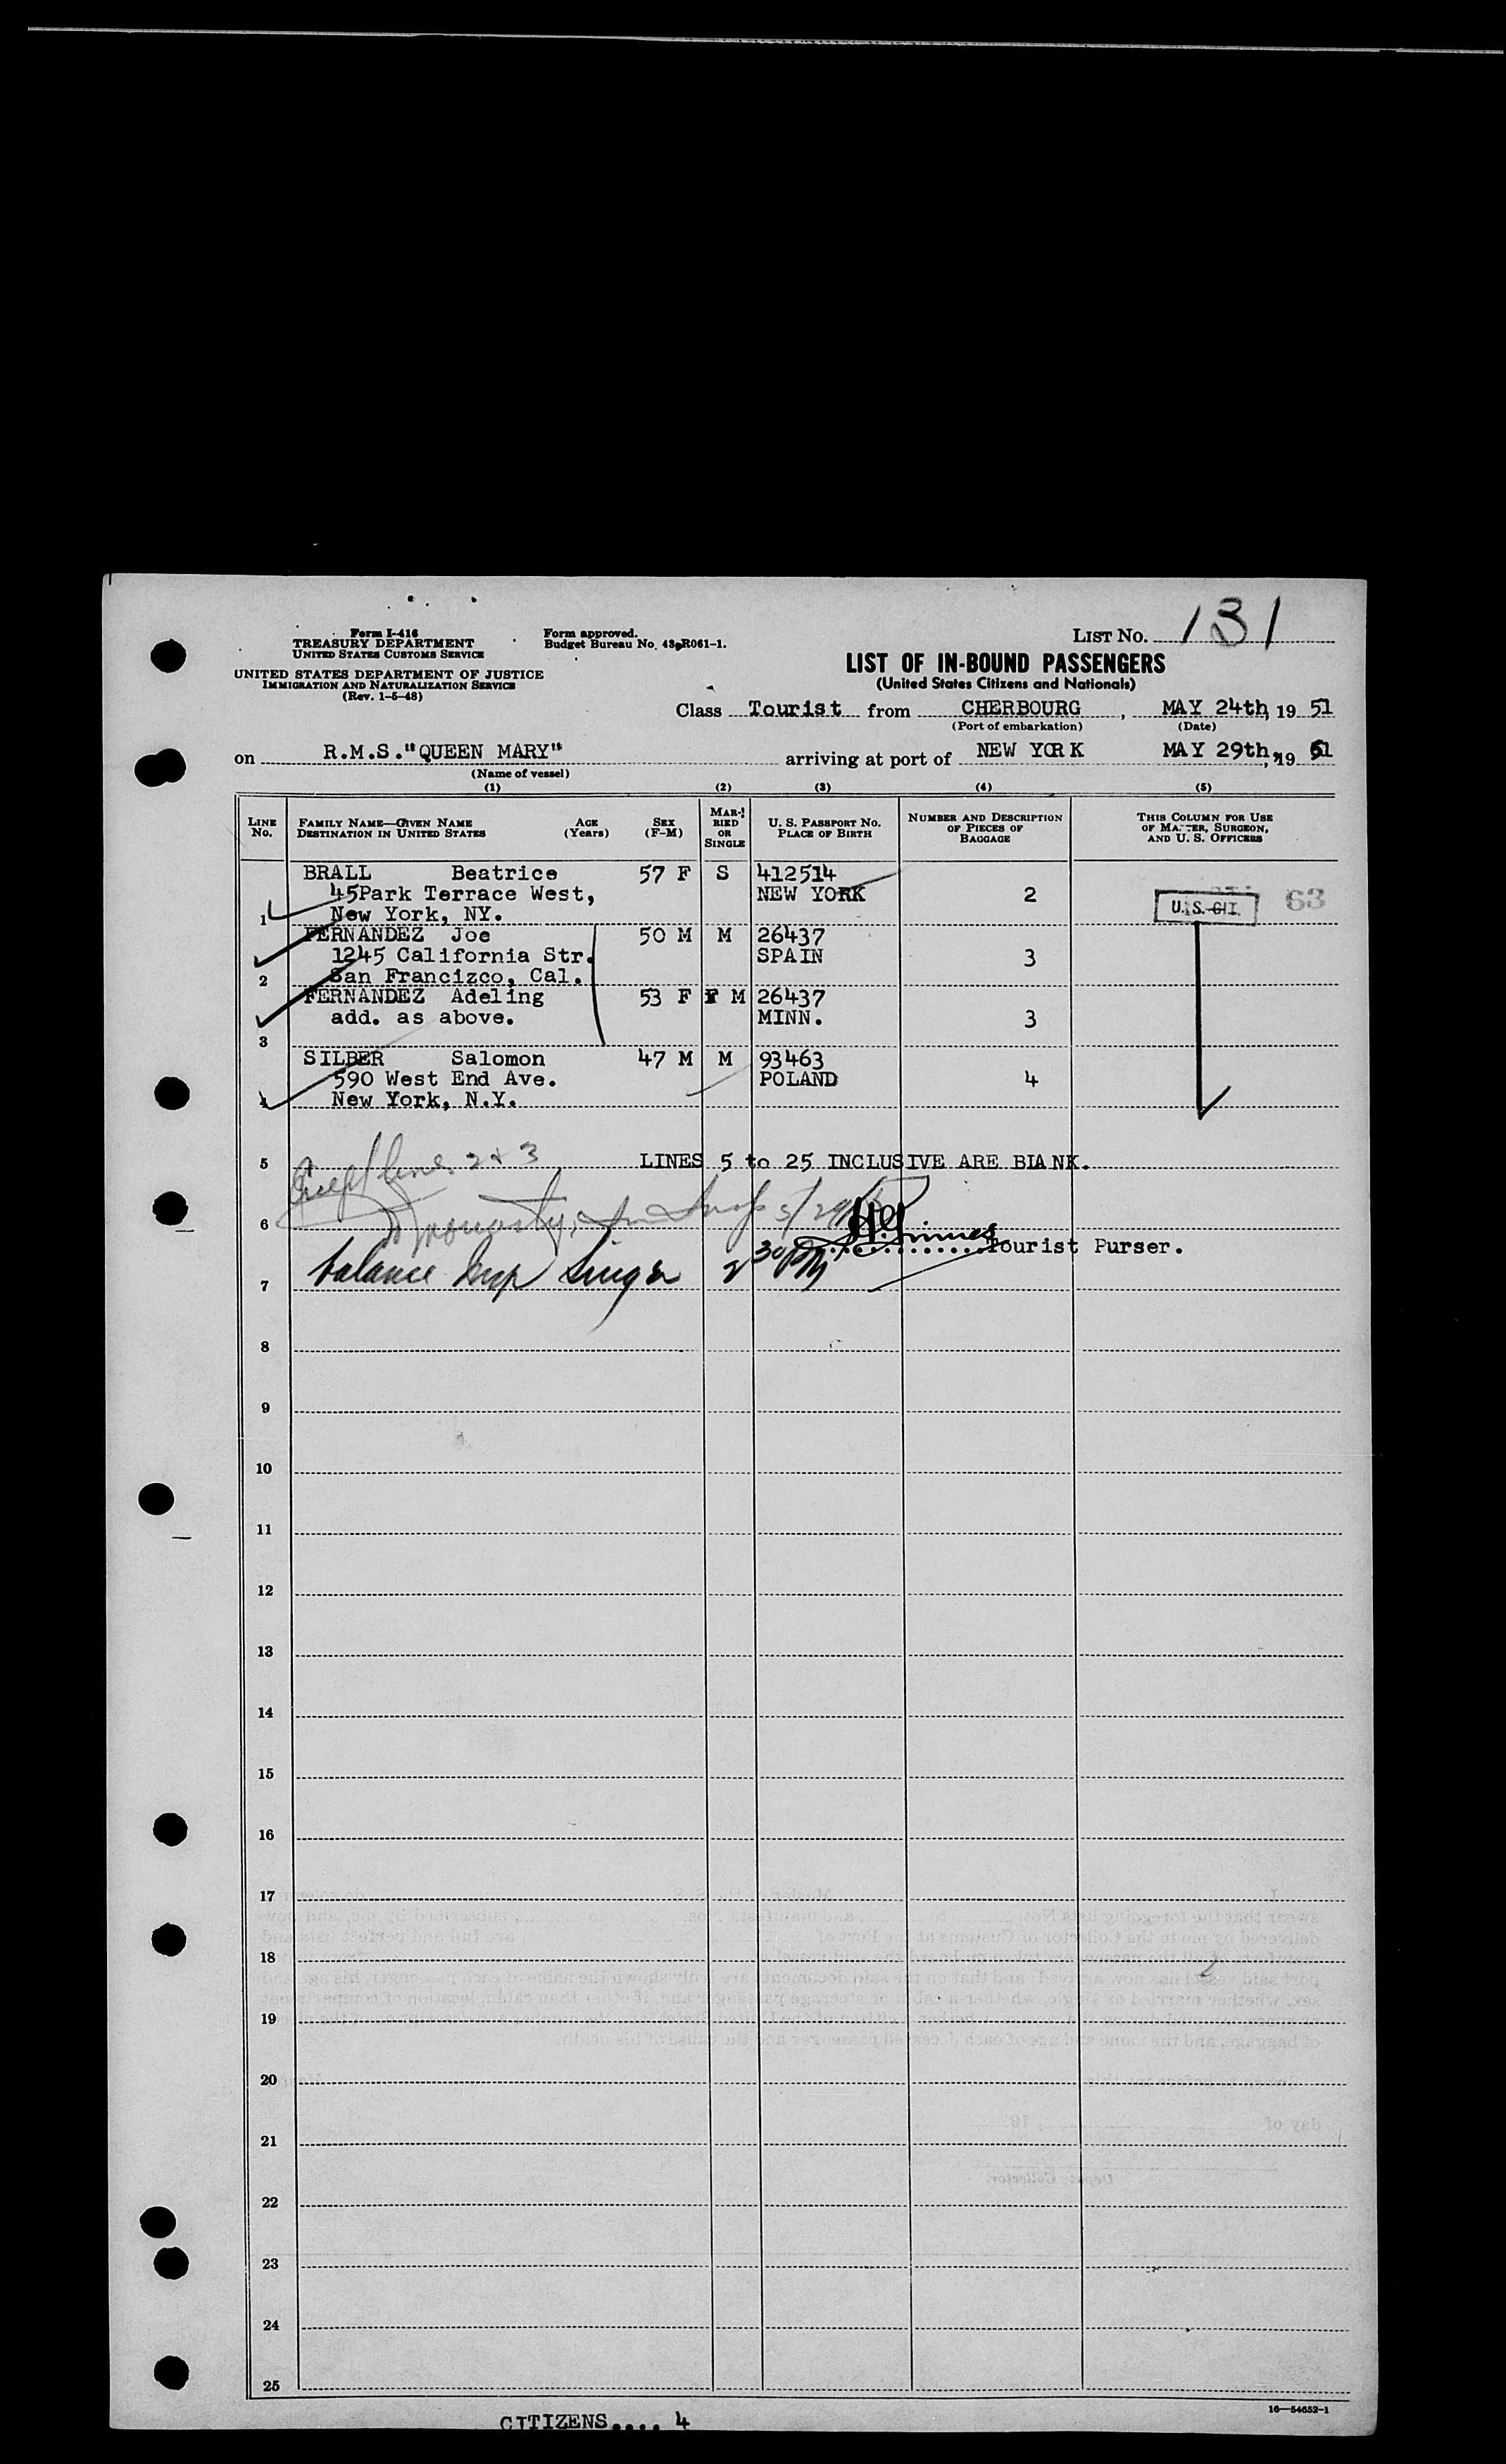 Form I-416
TREASURY DEPARTMENT
UNITED STATES CUSTOMS SERVICE
UNITED STATES DEPARTMENT OF JUSTICE
IMMIGRATION AND NATURALIZATION SERVICE
(Rev. 1-5-48)
Form approved.
Budget Bureau No. 43-R061-1.
LIST NO. 131
LIST OF IN-BOUND PASSENGERS
(United States Citizens and Nationals)
Class Tourist from CHERBOURG, MAY 24th, 19 51
(Port of embarkation) (Date)
on R.M.S."QUEEN MARY" arriving at port of NEW YORK MAY 29th, 19 51
(Name of vessel)
(1) (2) (3) (4) (5)
LINE No. FAMILY NAME—GIVEN NAME DESTINATION IN UNITED STATES AGE (Years) SEX (F-M) MARRIED OR SINGLE U. S. PASSPORT NO. PLACE OF BIRTH NUMBER AND DESCRIPTION OF PIECES OF BAGGAGE THIS COLUMN FOR USE OF MASTER, SURGEON, AND U. S. OFFICERS
BRALL Beatrice 57 F S 412514
45Park Terrace West, NEW YORK 2 U.S. CIT. 63
1 New York, NY.
FERNANDEZ Joe 50 M M 26437
1245 California Str. SPAIN 3
2 San Francizco, Cal.
FERNANDEZ Adeling 53 F M 26437
add. as above. MINN. 3
3
SILBER Salomon 47 M M 93463
590 West End Ave. POLAND 4
4 New York, N.Y.
5 LINES 5 to 25 INCLUSIVE ARE BLANK.
Except lines 2 & 3
6
Tourist Purser.
balance Insp Singer 2 30 PM
7
8
9
10
11
12
13
14
15
16
17
18
19
20
21
22
23
24
25
16—54652-1
CITIZENS.... 4